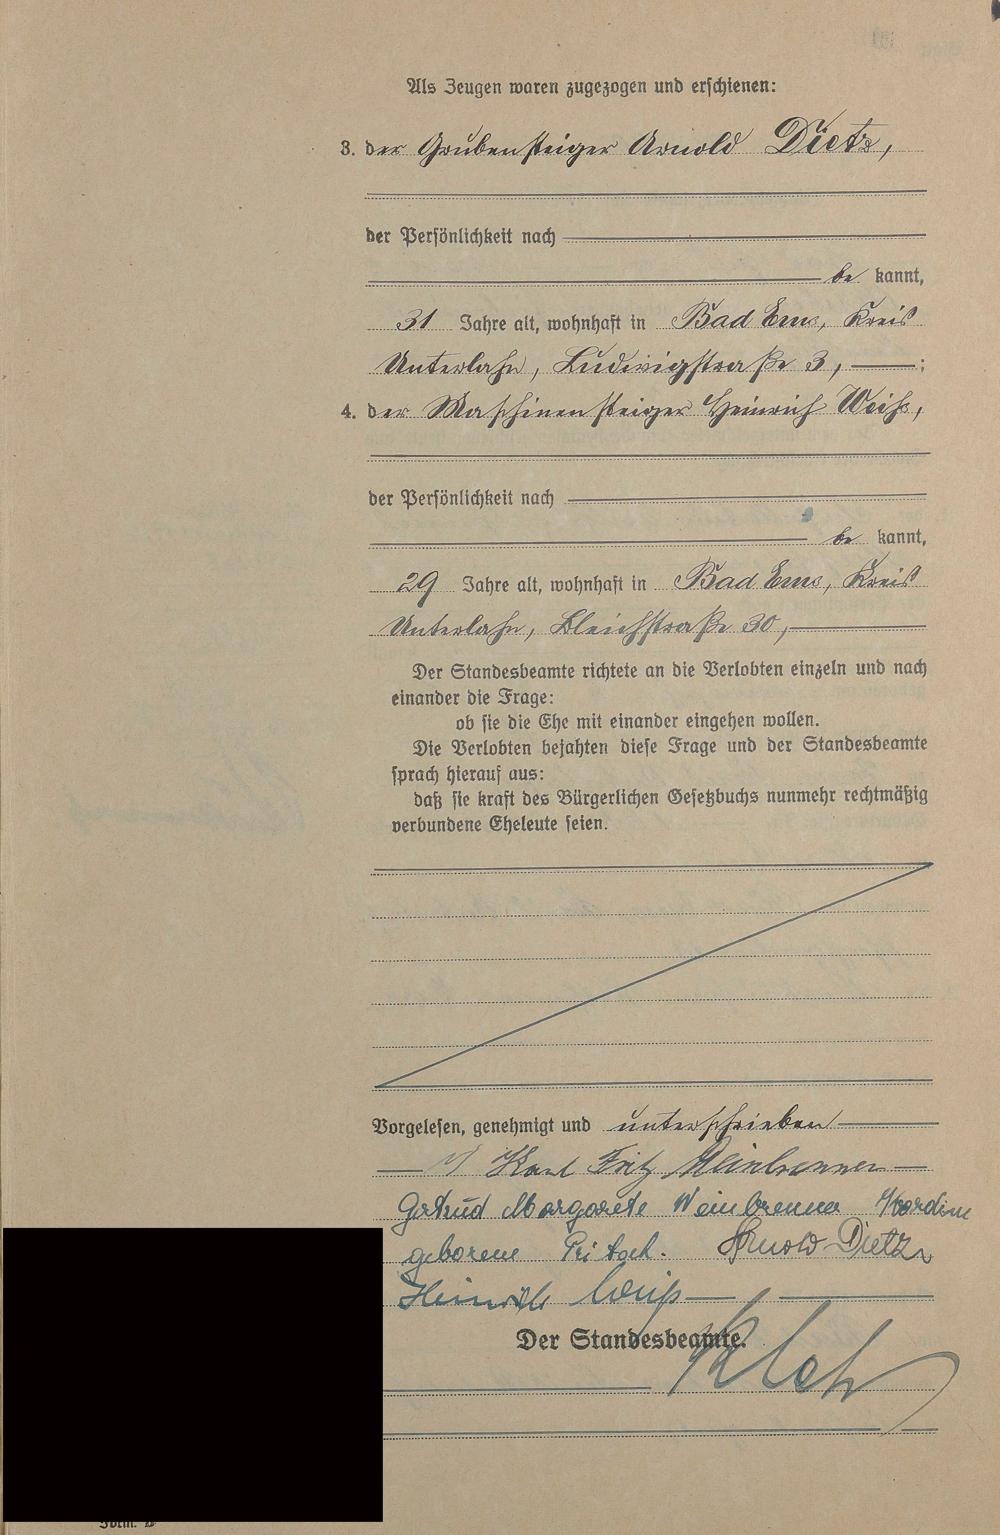 Als Zeugen waren zugezogen und erschienen:
3. der Grubensteiger Arnold Dietz,
der Persönlichkeit nach
be kannt,
31 Jahre alt, wohnhaft in Bad Ems, Kreis
Unterlahn, Ludwigstraße 3, ;
4. der Maschinensteiger Heinrich Weiß,
der Persönlichkeit nach
be kannt,
29 Jahre alt, wohnhaft in Bad Ems, Kreis
Unterlahn, Bleichstraße 30,
Der Standesbeamte richtete an die Verlobten einzeln und nach
einander die Frage:
ob sie die Ehe mit einander eingehen wollen.
Die Verlobten bejahten diese Frage und der Standesbeamte
sprach hierauf aus:
daß sie kraft des Bürgerlichen Gesetzbuchs nunmehr rechtmäßig
verbundene Eheleute seien.
Vorgelesen, genehmigt und unterschrieben
Karl Fritz Weinbrenner
Gertrud Margarete Weinbrenner
geborene Arnold Dietz
Heinrich Weiß
Der Standesbeamte.